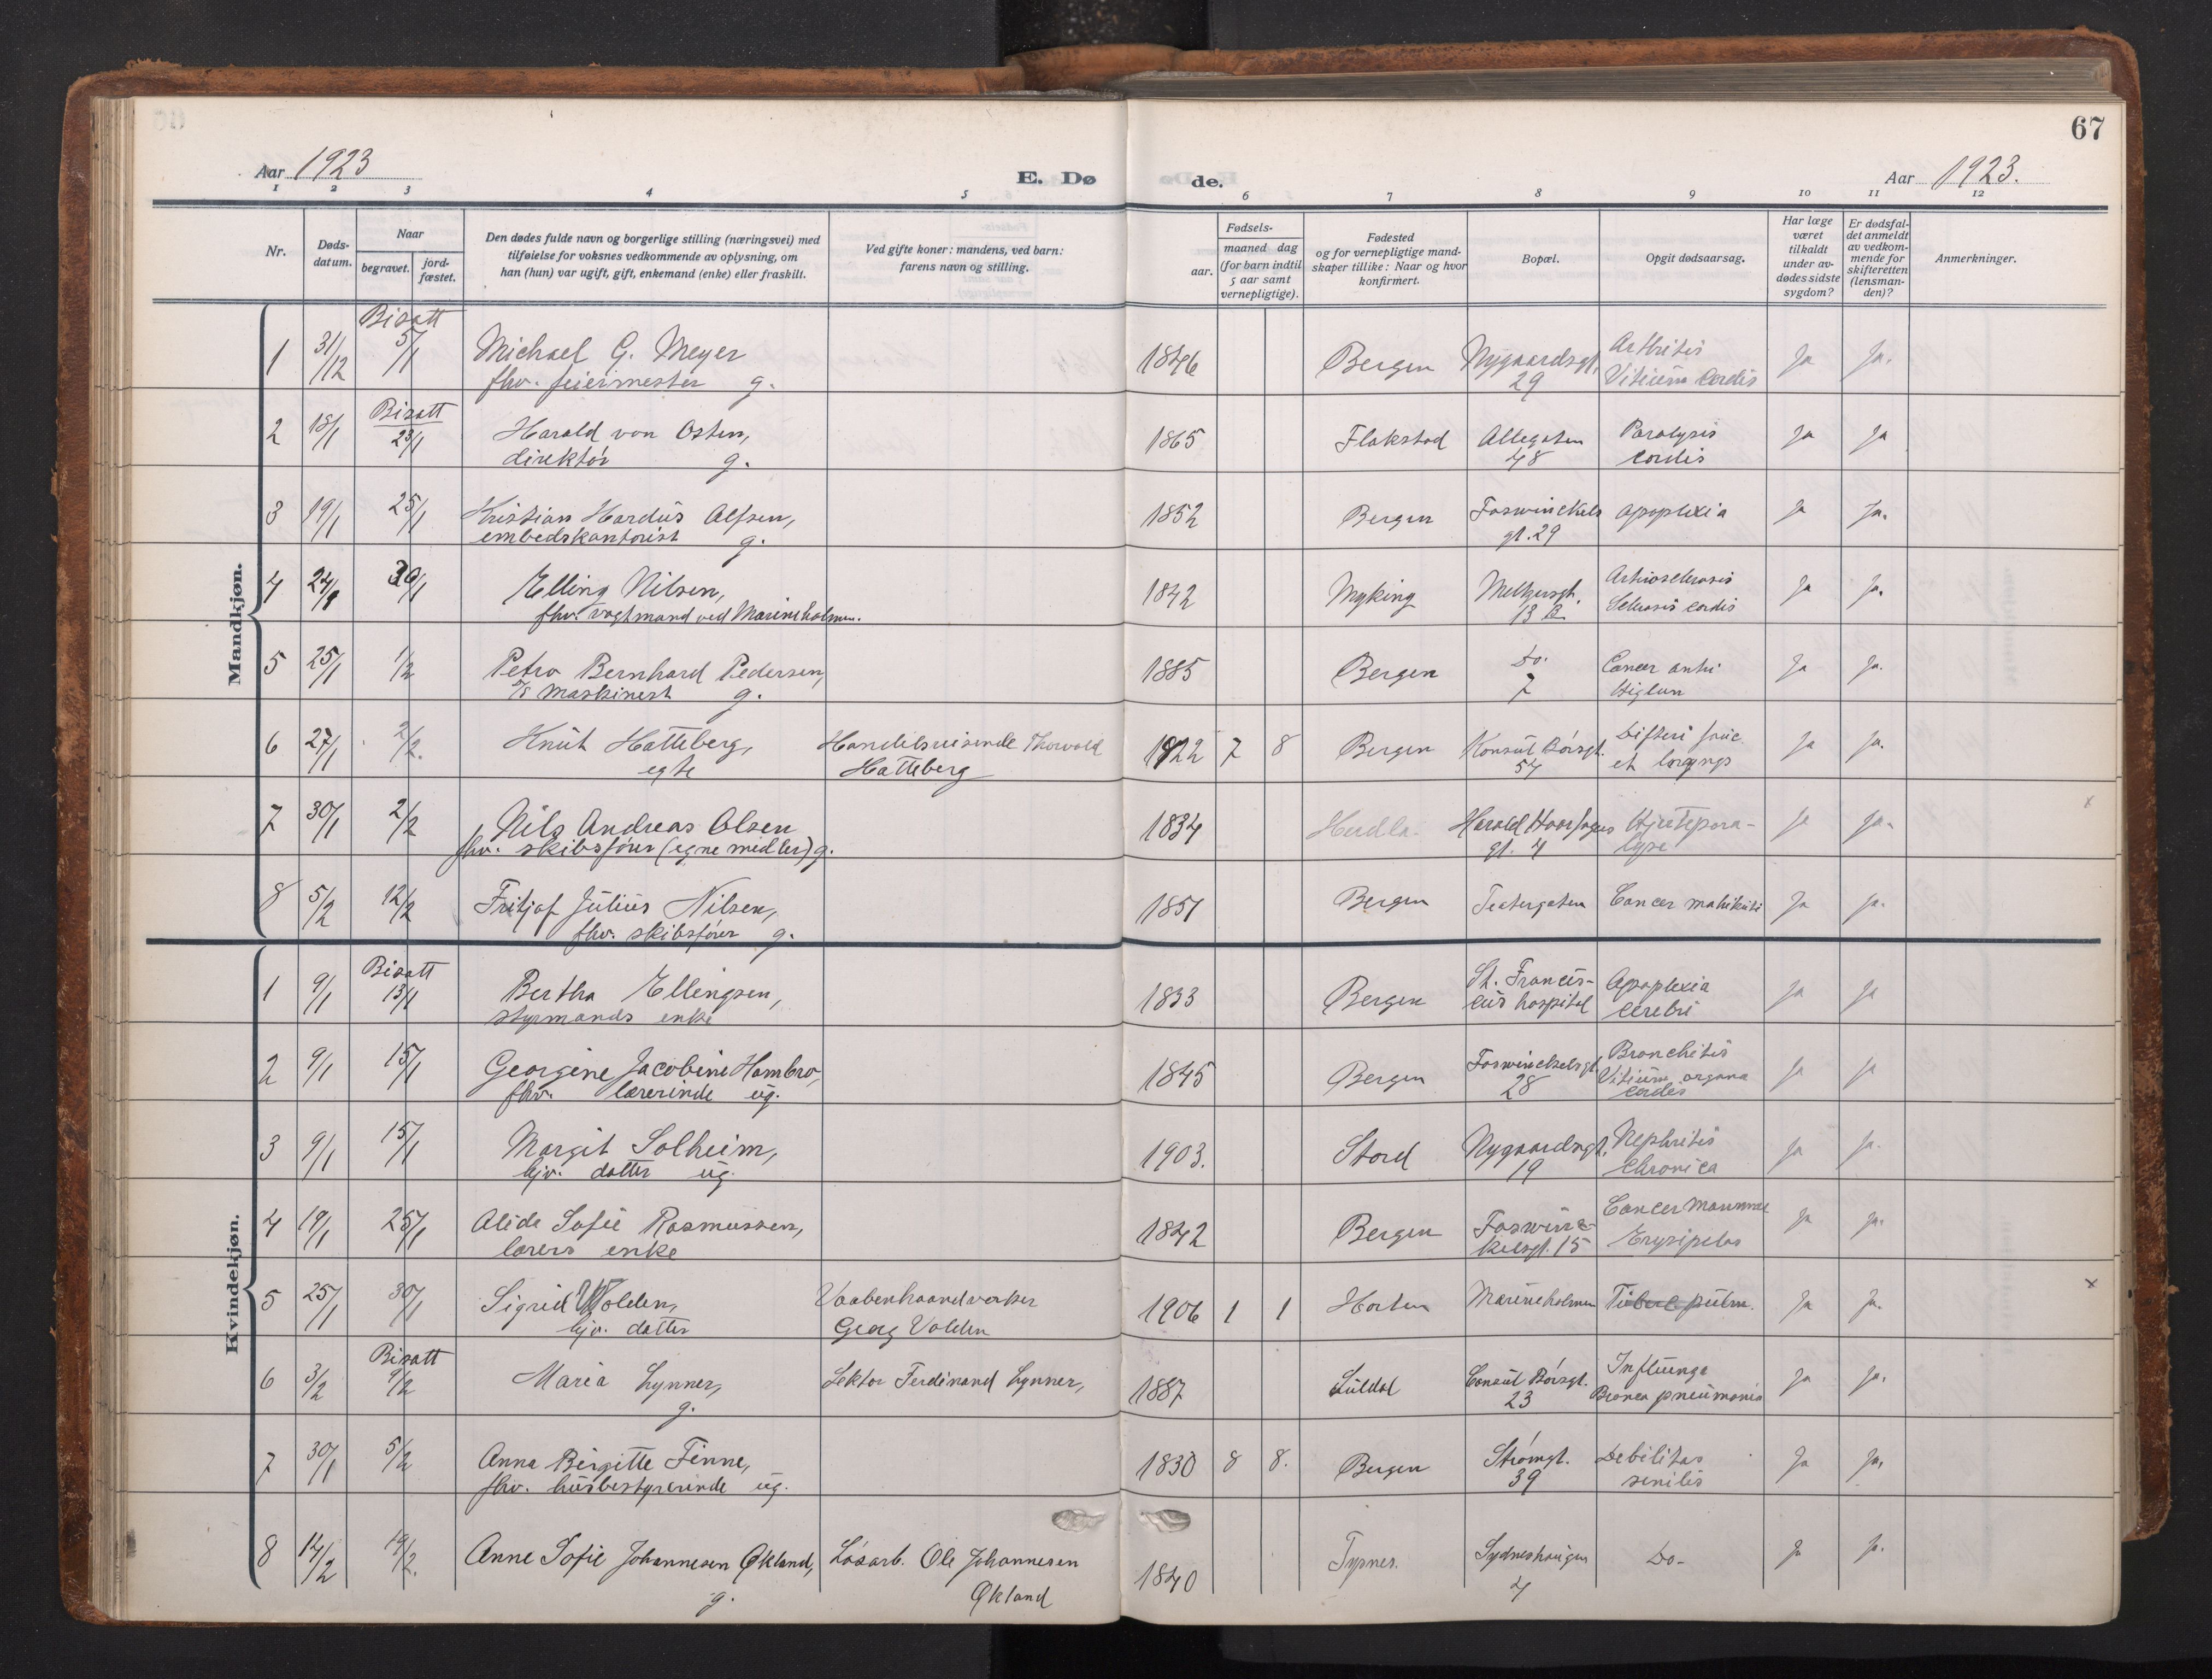 67
Aar 1923
E. Dø
de.
Aar 1923.
1 2 3 4 5 6 7 8 9 10 11 12
Nr.
Døds-
datum.
Naar
begravet.
jord-
fæstet.
Den dødes fulde navn og borgerlige stilling (næringsvei) med
tilføielse for voksnes vedkommende av oplysning, om
han (hun) var ugift, gift, enkemand (enke) eller fraskilt.
Ved gifte koner: mandens, ved barn:
farens navn og stilling.
aar.
Fødsels-
maaned dag
(for barn indtil
5 aar samt
vernepligtige).
Fødested
og for vernepligtige mand-
skaper tillike: Naar og hvor
konfirmert.
Bopæl.
Opgit dødsaarsag.
Har læge
været
tilkaldt
under av-
dødes sidste
sygdom?
Er dødsfal-
det anmeldt
av vedkom-
mende for
skifteretten
(lensman-
den)?
Anmerkninger.
Mandkjøn.
Bisatt
1 31/12 5/1 Michael G. Meyer 1846 Bergen Nygaardsgt. Arthritis Ja Ja.
fhv. feiermester g. 29 Vitium Cordis
Bisatt
2 18/1 23/1 Harald von Osten, 1865 Flakstad Allegaten Paralysis Ja Ja
direktør g. 48 cordis
3 19/1 25/1 Kristian Hardus Alfsen, 1852 Bergen Foswinckels apoplexia Ja Ja.
embedskontorist g. gt. 29
4 30/1 Elling Nilsen, 1842 Myking Meltzersgt. Ja Ja.
fhv. vogtmand ved Marineholmen. 13 B Sclerosis cordis
5 25/1 1/2 Petro Bernhard Pedersen, 1885 Bergen Do. Cancer Ja Ja.
maskinist g. 7
6 27/1 2/2. Knut Hatteberg, Handelsreisende Thorvald 1922 7 8 Bergen Konsul Børsgt. Difteri Ja Ja.
egte Hatteberg 54 et laryngs
7 30/1 2/2 Nils Andreas Olsen 1834 Herdla Harald Haarfagres Hjertepara- Ja Ja. x
fhv. skibsfører (egne midler) g. gt. 4 lyse
8 5/2 12/2 Fritjof Julius Nilsen, 1851 Bergen Teatergaten Cancer Ja Ja.
fhv. skibsfører g.
Kvindekjøn.
Bisatt
1 9/1 13/1 Bertha Ellingsen, 1833 Bergen St. Francis- Apoplexia Ja Ja
styrmands enke cus hospital cerebri
2 9/1 15/1 Georgine Jacobine Hambro, 1845 Bergen Foswinckelsgt. Bronchitis Ja Ja
fhv. lærerinde ug. 28 Vitium organa
cordis
3 9/1 15/1 Margit Solheim, 1903. Stord Nygaardsgt. Nephritis Ja Ja.
hjv. datter ug. 19 Chronica
4 19/1 25/1 Alida Sofie Rasmussen, 1842 Bergen Foswinc- Cancer Mammae Ja Ja.
lærers enke kelsgt. 15 Erysipelas
5 25/1 30/1 Sigrid Wolden, Vaabenhaandverker 1906 1 1 Horten Marineholmen Tubercpulm. Ja Ja. x
hjv. datter Georg Volden
Bisatt
6 3/2 9/2 Maria Lynner, Lektor Ferdinand Lynner, 1887 Suldal Consul Børsgt. Influenza Ja Ja.
g. 23 Bronca pneumonia
7 30/1 5/2 Anna Birgitte Finne, 1830 8 8. Bergen Strømgt. Debilitas Ja Ja.
fhv. husbestyrerinde ug. 39 senilis
8 14/2 19/2. Anne Sofie Johannesen Økland, Løsarb. Ole Johannesen 1840 Tysnes. Sydneshaugen Do- Ja Ja.
g. Økland 4